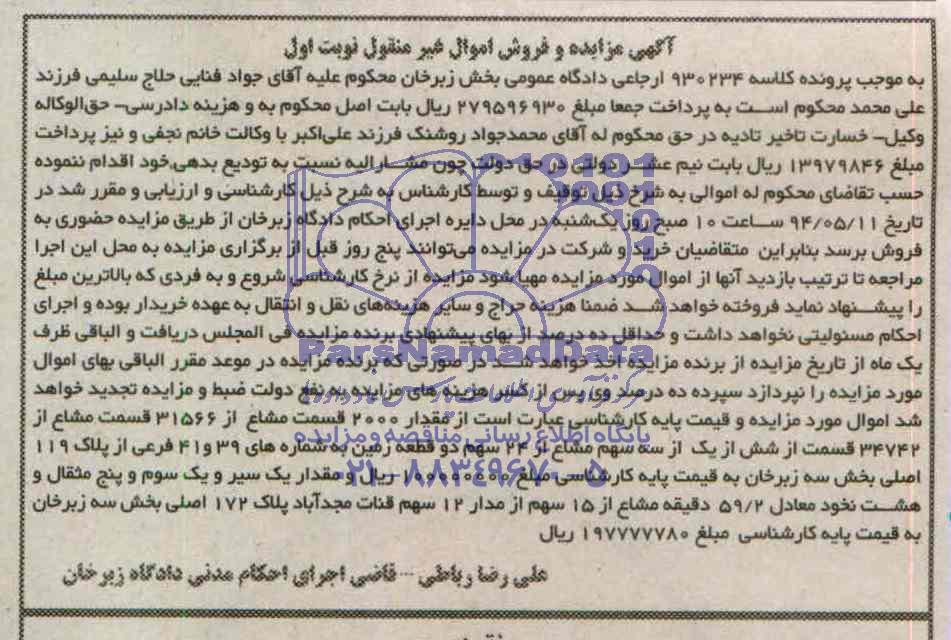 آگهی مزایده و فروش اموال غیر منقول نوبت اول
به موجب پرونده کلاسه ۹۳۰۲۳۴ ارجاعی دادگاه عمومی بخش زبرخان محکوم علیه آقای جواد فنایی حلاج سلیمی فرزند
علی محمد محکوم است به پرداخت جمعا مبلغ ۲۷۹۵۹۶۹۳۰ ریال بابت اصل محکوم به و هزینه دادرسی- حق‌الوکاله
وکیل- خسارت تاخیر تادیه در حق محکوم له آقای محمدجواد روشنک فرزند علی‌اکبر با وکالت خانم نجفی و نیز پرداخت
مبلغ ۱۳۹۷۹۸۴۶ ریال بابت نیم عشر دولتی در حق دولت چون مشارالیه نسبت به تودیع بدهی خود اقدام ننموده
حسب تقاضای محکوم له اموالی به شرح ذیل توقیف و توسط کارشناس به شرح ذیل کارشناسی و ارزیابی و مقرر شد در
تاریخ ۹۴/۰۵/۱۱ ساعت ۱۰ صبح روز یک‌شنبه در محل دایره اجرای احکام دادگاه زبرخان از طریق مزایده حضوری به
فروش برسد بنابراین متقاضیان خرید و شرکت در مزایده می‌توانند پنج روز قبل از برگزاری مزایده به محل این اجرا
مراجعه تا ترتیب بازدید آنها از اموال مورد مزایده مهیا شود مزایده از نرخ کارشناسی شروع و به فردی که بالاترین مبلغ
را پیشنهاد نماید فروخته خواهد شد ضمنا هزینه حراج و سایر هزینه‌های نقل و انتقال به عهده خریدار بوده و اجرای
احکام مسئولیتی نخواهد داشت و حداقل ده درصد از بهای پیشنهادی برنده مزایده فی المجلس دریافت و الباقی ظرف
یک ماه از تاریخ مزایده از برنده مزایده اخذ خواهد شد در صورتی که برنده مزایده در موعد مقرر الباقی بهای اموال
مورد مزایده را نپردازد سپرده ده درصد وی پس از کسر هزینه های مزایده به نفع دولت ضبط و مزایده تجدید خواهد
شد اموال مورد مزایده و قیمت پایه کارشناسی عبارت است از مقدار ۲۰۰۰ قسمت مشاع از ۳۱۵۶۶ قسمت مشاع از
۳۴۷۴۲ قسمت از شش از یک از سه سهم مشاع از ۲۴ سهم دو قطعه زمین به شماره های ۳۹ و ۴۱ فرعی از پلاک ۱۱۹
اصلی بخش سه زبرخان به قیمت پایه کارشناسی مبلغ ریال و مقدار یک سیر و یک سوم و پنج مثقال و
هشت نخود معادل ۵۹/۲ دقیقه مشاع از ۱۵ سهم از مدار ۱۲ سهم قنات مجدآباد پلاک ۱۷۲ اصلی بخش سه زبرخان
به قیمت پایه کارشناسی مبلغ ۱۹۷۷۷۷۷۸۰ ریال
علی رضا رباطی - قاضی اجرای احکام مدنی دادگاه زبرخان
ParsNamadData
پایگاه اطلاع رسانی مناقصه و مزایده
۰۲۱-۸۸۳۴۹۶۷۰-۵